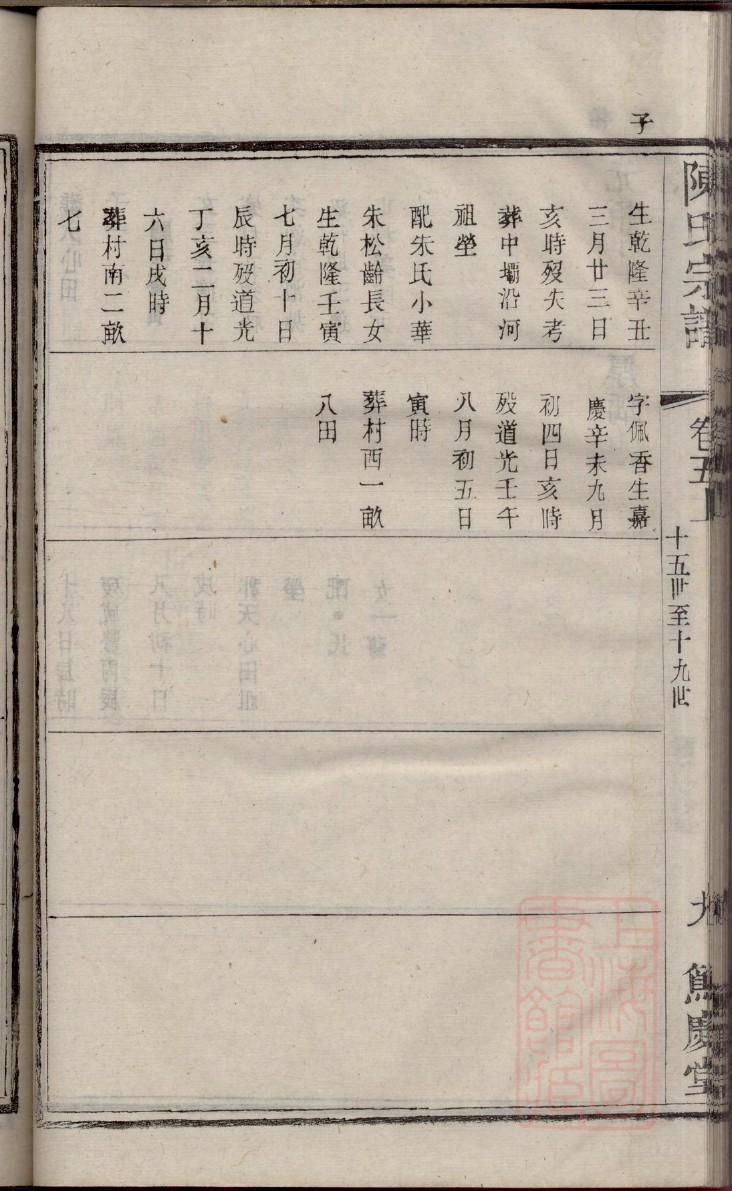 陳氏宗譜
卷五上
十五世至十九世
九
慶堂
子
生乾隆辛丑
三月廿三日
亥時歿失考
葬中壩沿河
祖塋
配朱氏小華
朱松齡長女
生乾隆壬寅
七月初十日
辰時歿道光
丁亥二月十
六日戌時
葬村南二畝
七
字佩香生嘉
慶辛未九月
初四日亥時
歿道光壬午
八月初五日
寅時
葬村西一畝
八田
上海圖
書館藏